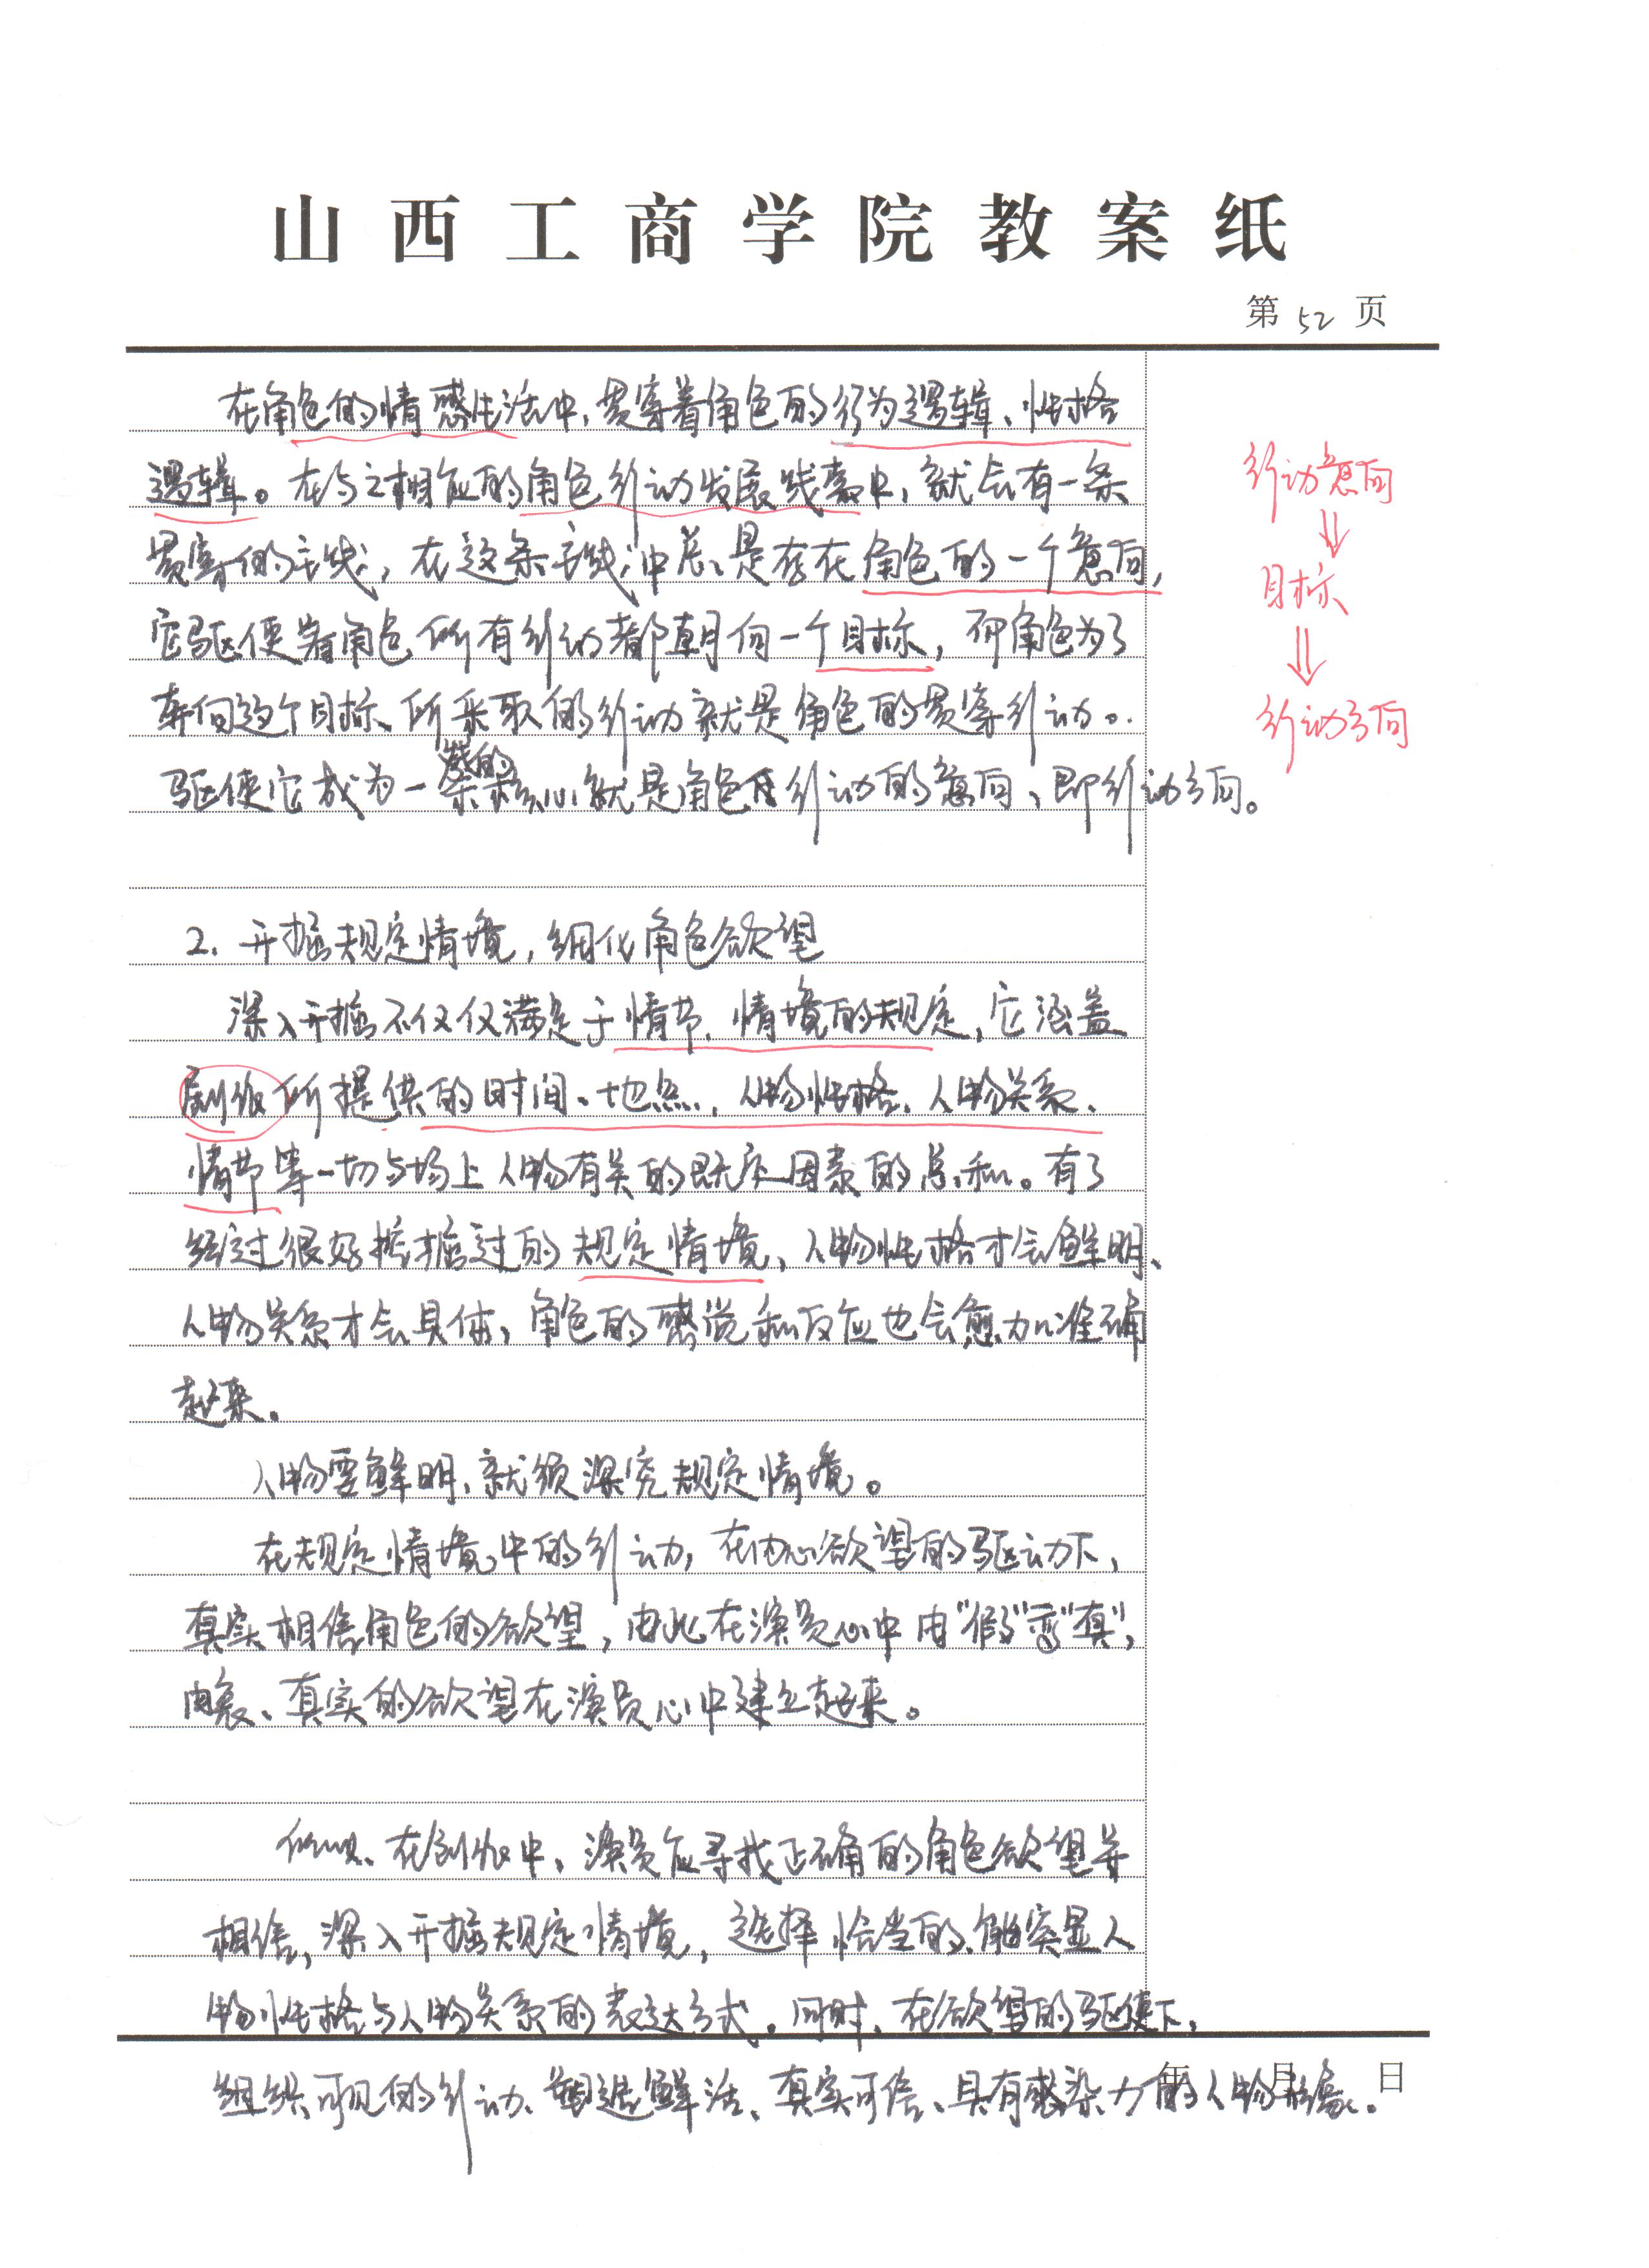 山西工商学院教案纸
第52页
在角色的情感生活中,贯穿着角色的行为逻辑、性格
逻辑。在与之相应的角色行动发展线索中,就会有一条
贯穿的主线,在这条主线中总是存在角色的一个意向,
它驱使着角色所有行动都朝向一个目标,而角色为了
奔向这个目标、所采取的行动就是角色的贯穿行动。
驱使它成为一条线的核心就是角色行动的意向、即行动方向。
行动意向
⇓
目标
⇓
行动方向
2. 开掘规定情境,细化角色欲望
深入开掘不仅仅满足于情节、情境的规定,它涵盖
剧作所提供的时间、地点、人物性格、人物关系、
情节等一切与场上人物有关的既定因素的总和。有了
经过很好挖掘过的规定情境、人物性格才会鲜明、
人物关系才会具体,角色的感觉和反应也会愈加准确
起来。
人物要鲜明、就须深究规定情境。
在规定情境中的行动,在内心欲望的驱动下,
真实相信角色的欲望,由此在演员心中由“假”变“真”,
内衷、真实的欲望在演员心中建立起来。
所以、在创作中、演员应寻找正确的角色欲望并
相信,深入开掘规定情境,选择恰当的、能突显人
物性格与人物关系的表达方式。同时、在欲望的驱使下,
组织可见的行动、塑造鲜活、真实可信、具有感染力的人物形象。
年 月 日